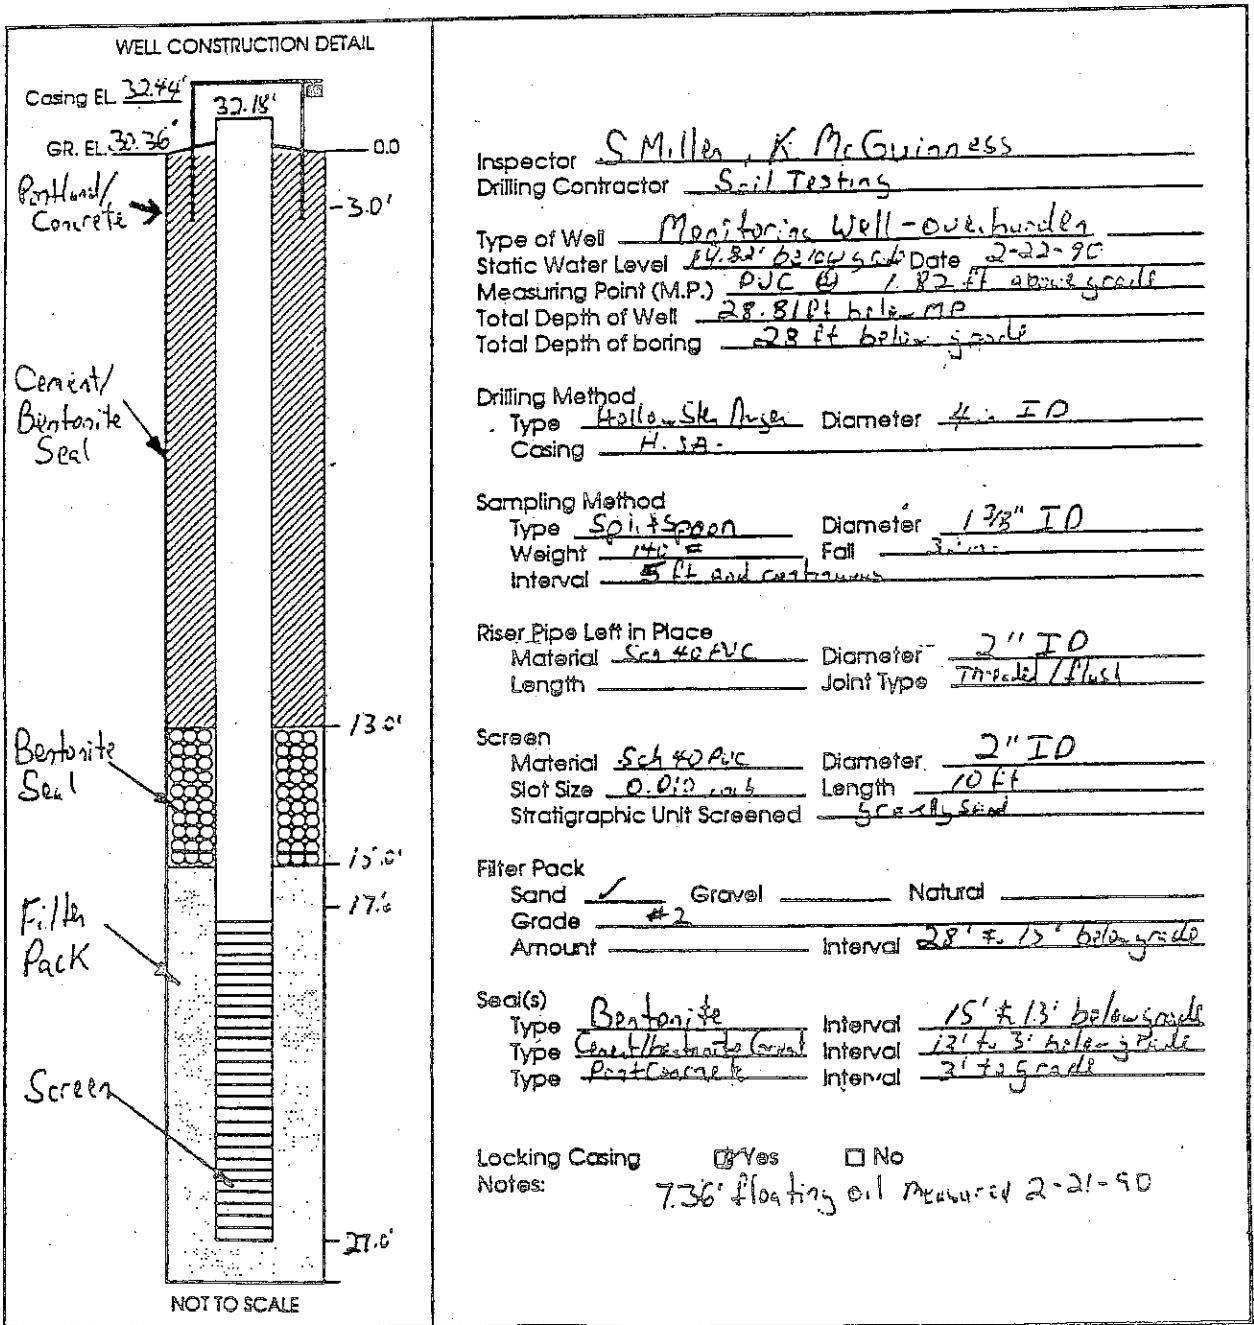 WELL CONSTRUCTION DETAIL
Casing EL. 32.44'
32.18'
GR. EL. 30.36'
0.0
Portland/
Concrete
3.0'
Cement/
Bentonite
Seal
13.0'
Bentonite
Seal
15.0'
17.0
Filter
Pack
Screen
27.0'
NOT TO SCALE
Inspector S Miller, K McGuinness
Drilling Contractor Soil Testing
Type of Well Monitoring Well-overburden
Static Water Level 14.82' below grade Date 2-22-90
Measuring Point (M.P.) PVC @ 1.82 ft above grade
Total Depth of Well 28.81 ft below MP
Total Depth of boring 28 ft below grade
Drilling Method
Type Hollow Stem Auger Diameter 4 in ID
Casing H.SA.
Sampling Method
Type Split Spoon Diameter 1 3/8" ID
Weight 140 # Fall
Interval 5 ft and continuous
Riser Pipe Left in Place
Material Sch 40 PVC Diameter 2" ID
Length Joint Type Threaded/flush
Screen
Material Sch 40 PVC Diameter 2" ID
Slot Size 0.010 inch Length 10 ft
Stratigraphic Unit Screened gravelly sand
Filter Pack
Sand ✓ Gravel Natural
Grade #2
Amount Interval 28' to 15' below grade
Seal(s)
Type Bentonite Interval 15' to 13' below grade
Type Cement/bentonite Grout Interval 13' to 3' below grade
Type Port Concrete Interval 3' to grade
Locking Casing Yes No
Notes: 7.36' floating oil measured 2-21-90